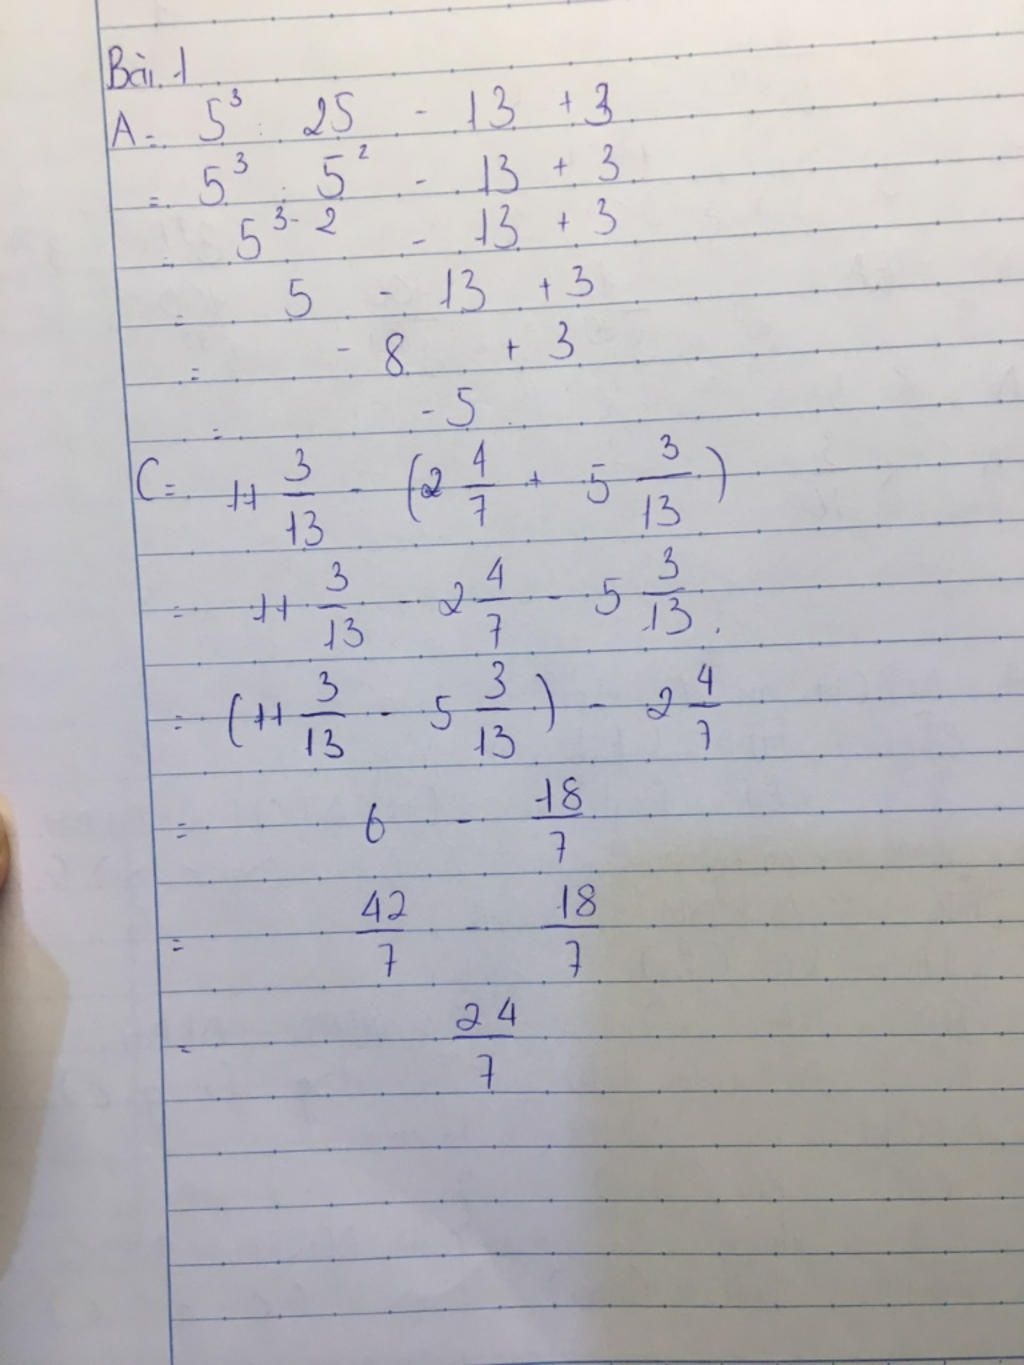 Bài 1
A = 5³ : 25 - 13 + 3
= 5³ : 5² - 13 + 3
= 5³⁻² - 13 + 3
= 5 - 13 + 3
= - 8 + 3
= - 5
C = 11 3/13 - (2 4/7 + 5 3/13)
= 11 3/13 - 2 4/7 - 5 3/13.
= (11 3/13 - 5 3/13) - 2 4/7
= 6 - 18/7
= 42/7 - 18/7
= 24/7